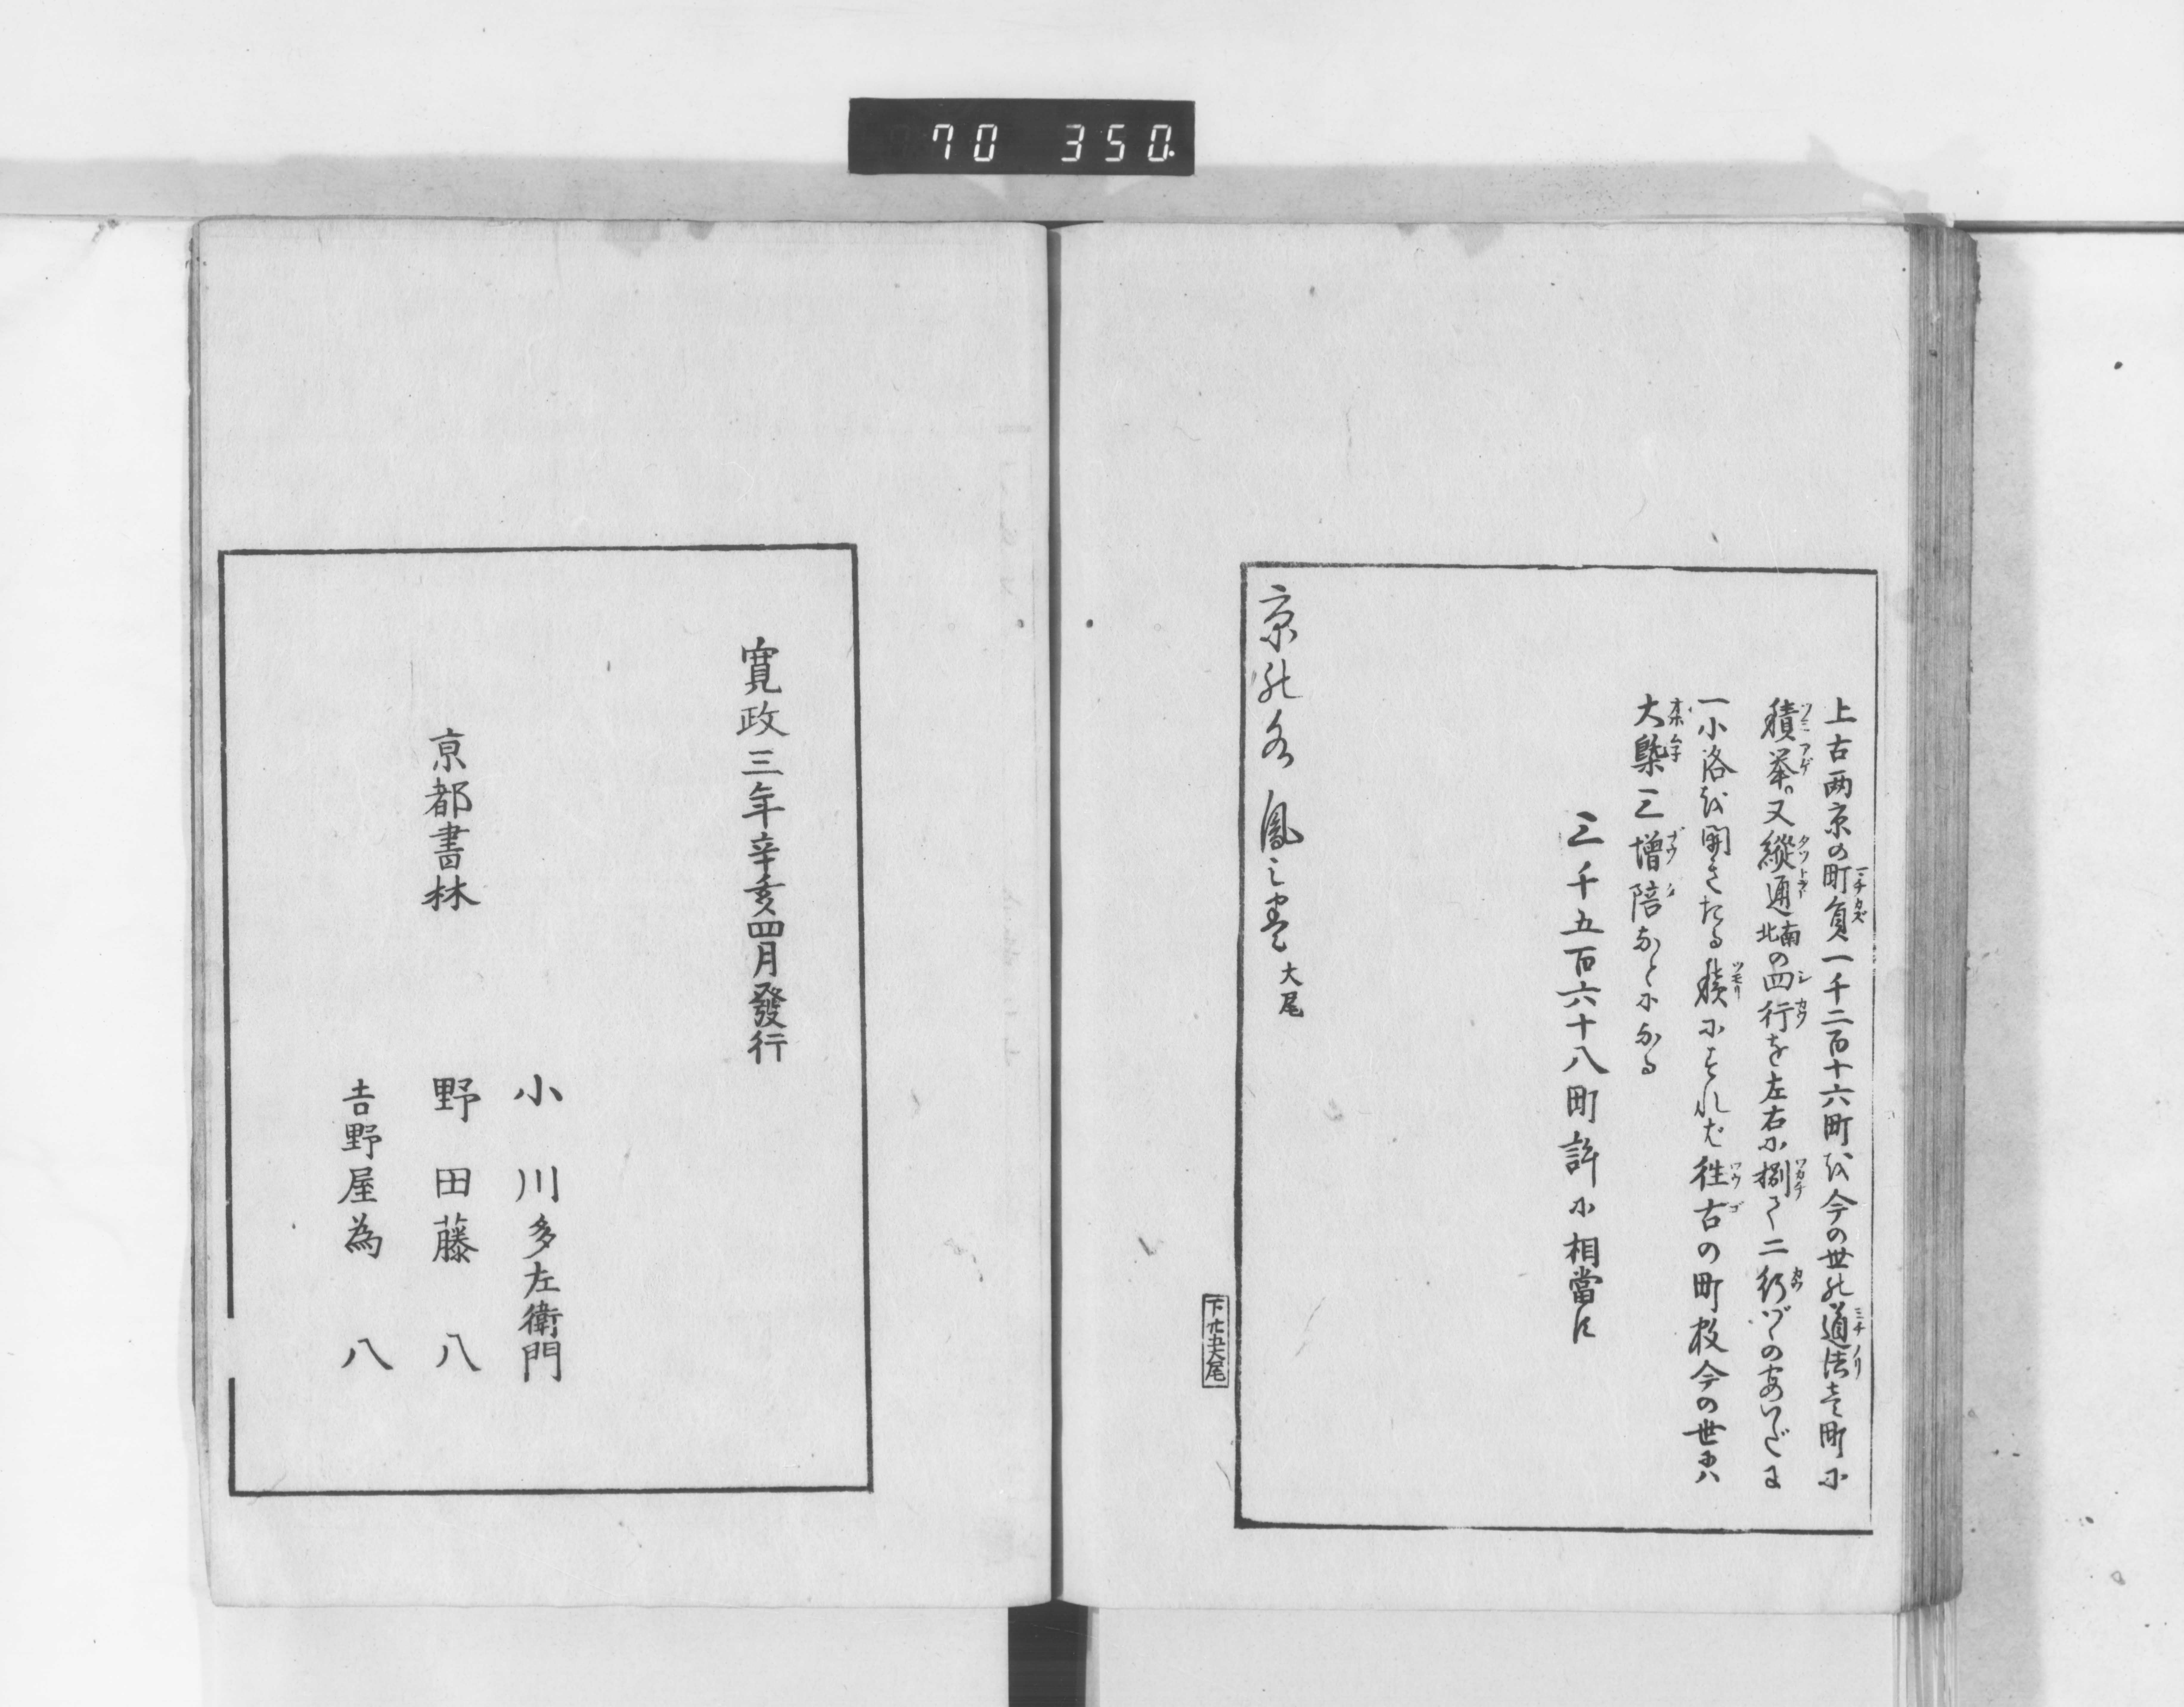 70 350
上古両京の町員一千二百十六町を今の世の道法壱町に
積挙。又縦通北南の四行を左右に捌て二行づゝのあいだに
一小洛を開きたる積にすれば往古の町数今の世には
大槩三増陪なとになる
三千五百六十八町許に相當す
京の水 鳳之巻大尾
下廿五大尾
寛政三年辛亥四月發行
京都書林
小川多左衛門
野田藤八
吉野屋為八